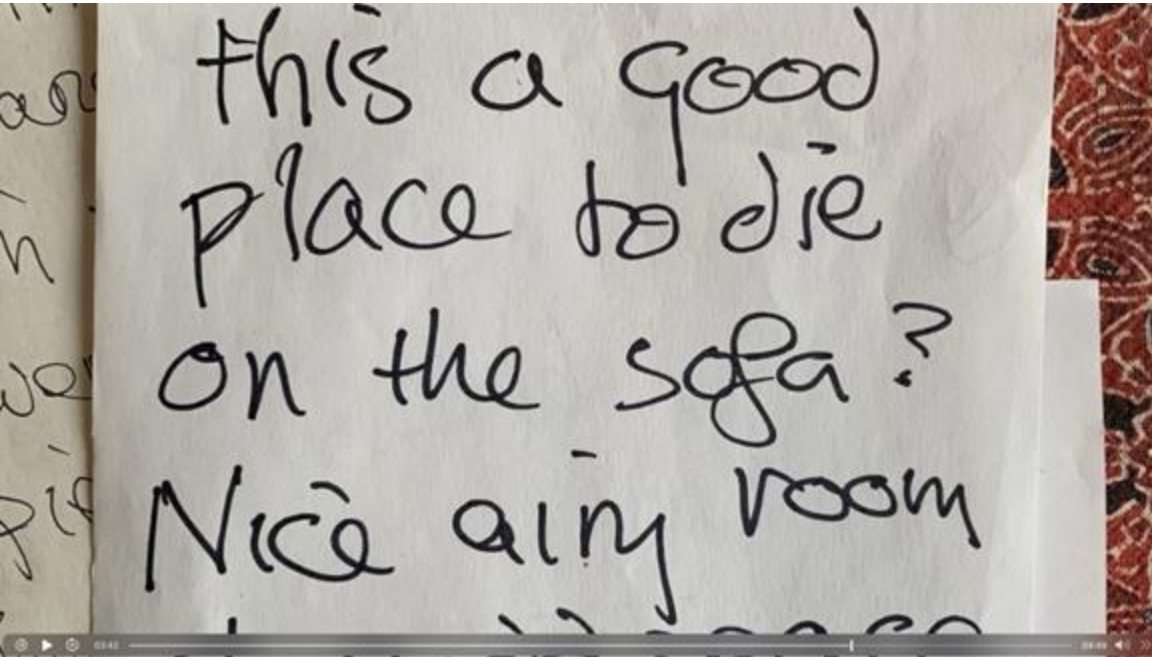 this a good
place to die
on the sofa?
Nice airy room
03:42